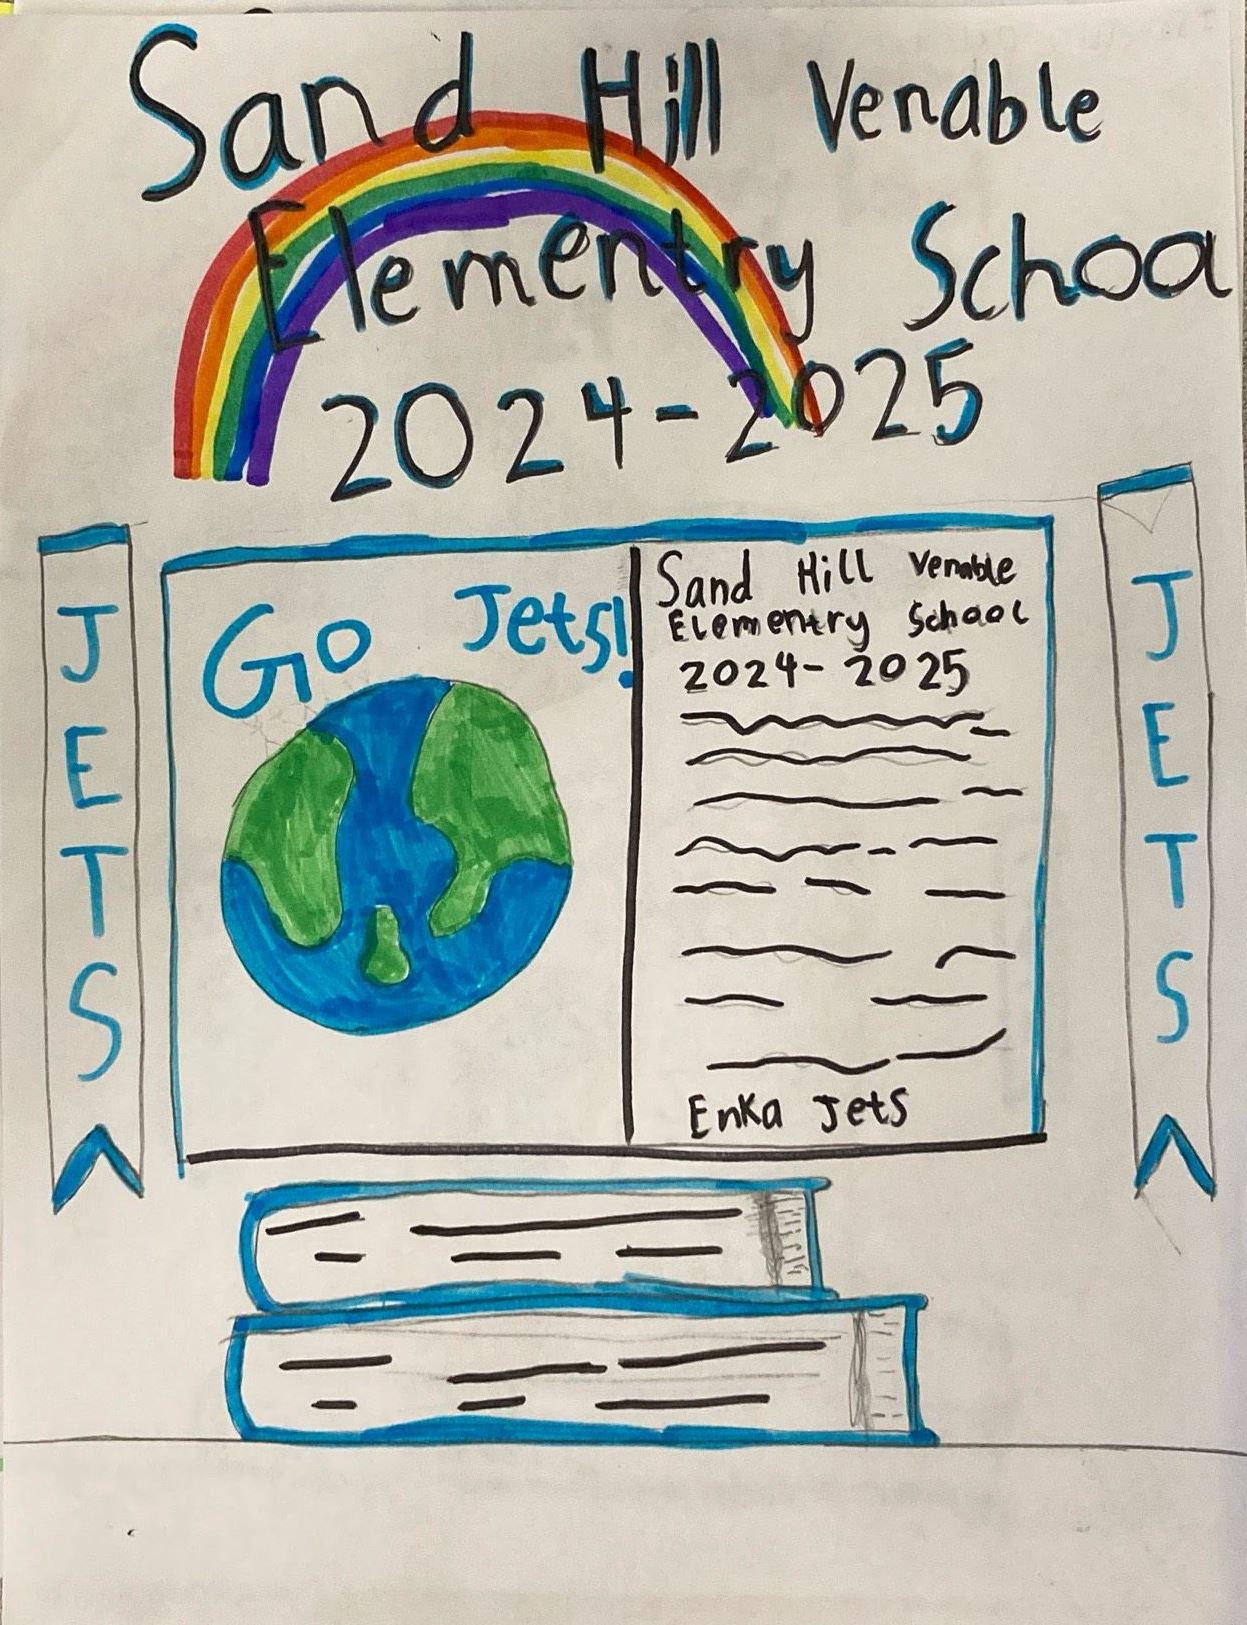 Sand Hill Venable
Elementry Schoo
2024-2025
JETS
Go Jets!
Sand Hill Venable
Elementry School
2024-2025
Enka Jets
JETS